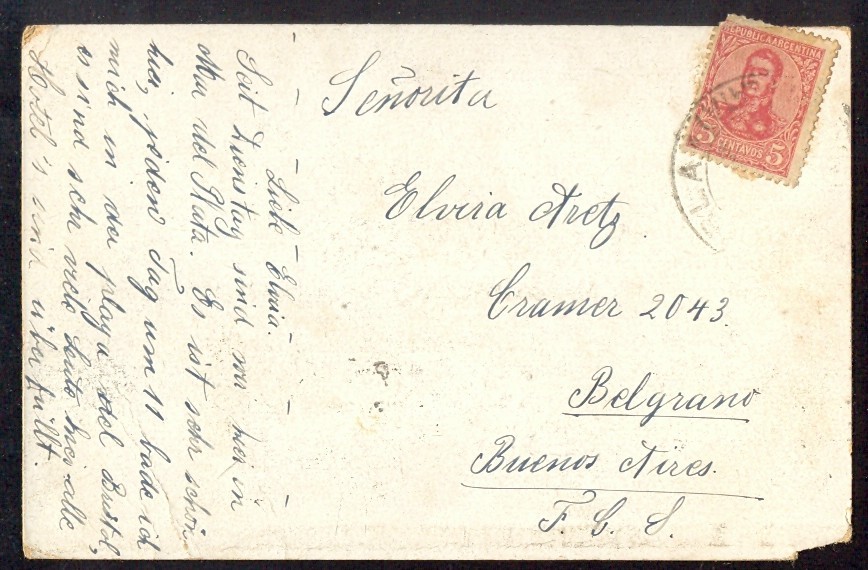 Liebe Elvira.
Seit Dienstag sind wir hier in
Mar del Plata. Es ist sehr schön
hier, jeden Tag um 11 bade ich
mich in der playa del Bristol,
es sind sehr viele Leute hier alle
Hotel's sind überfüllt.
Señorita
Elvira Aretz
Cramer 2043.
Belgrano
Buenos Aires.
F. C. S.
REPUBLICA ARGENTINA
5 CENTAVOS 5